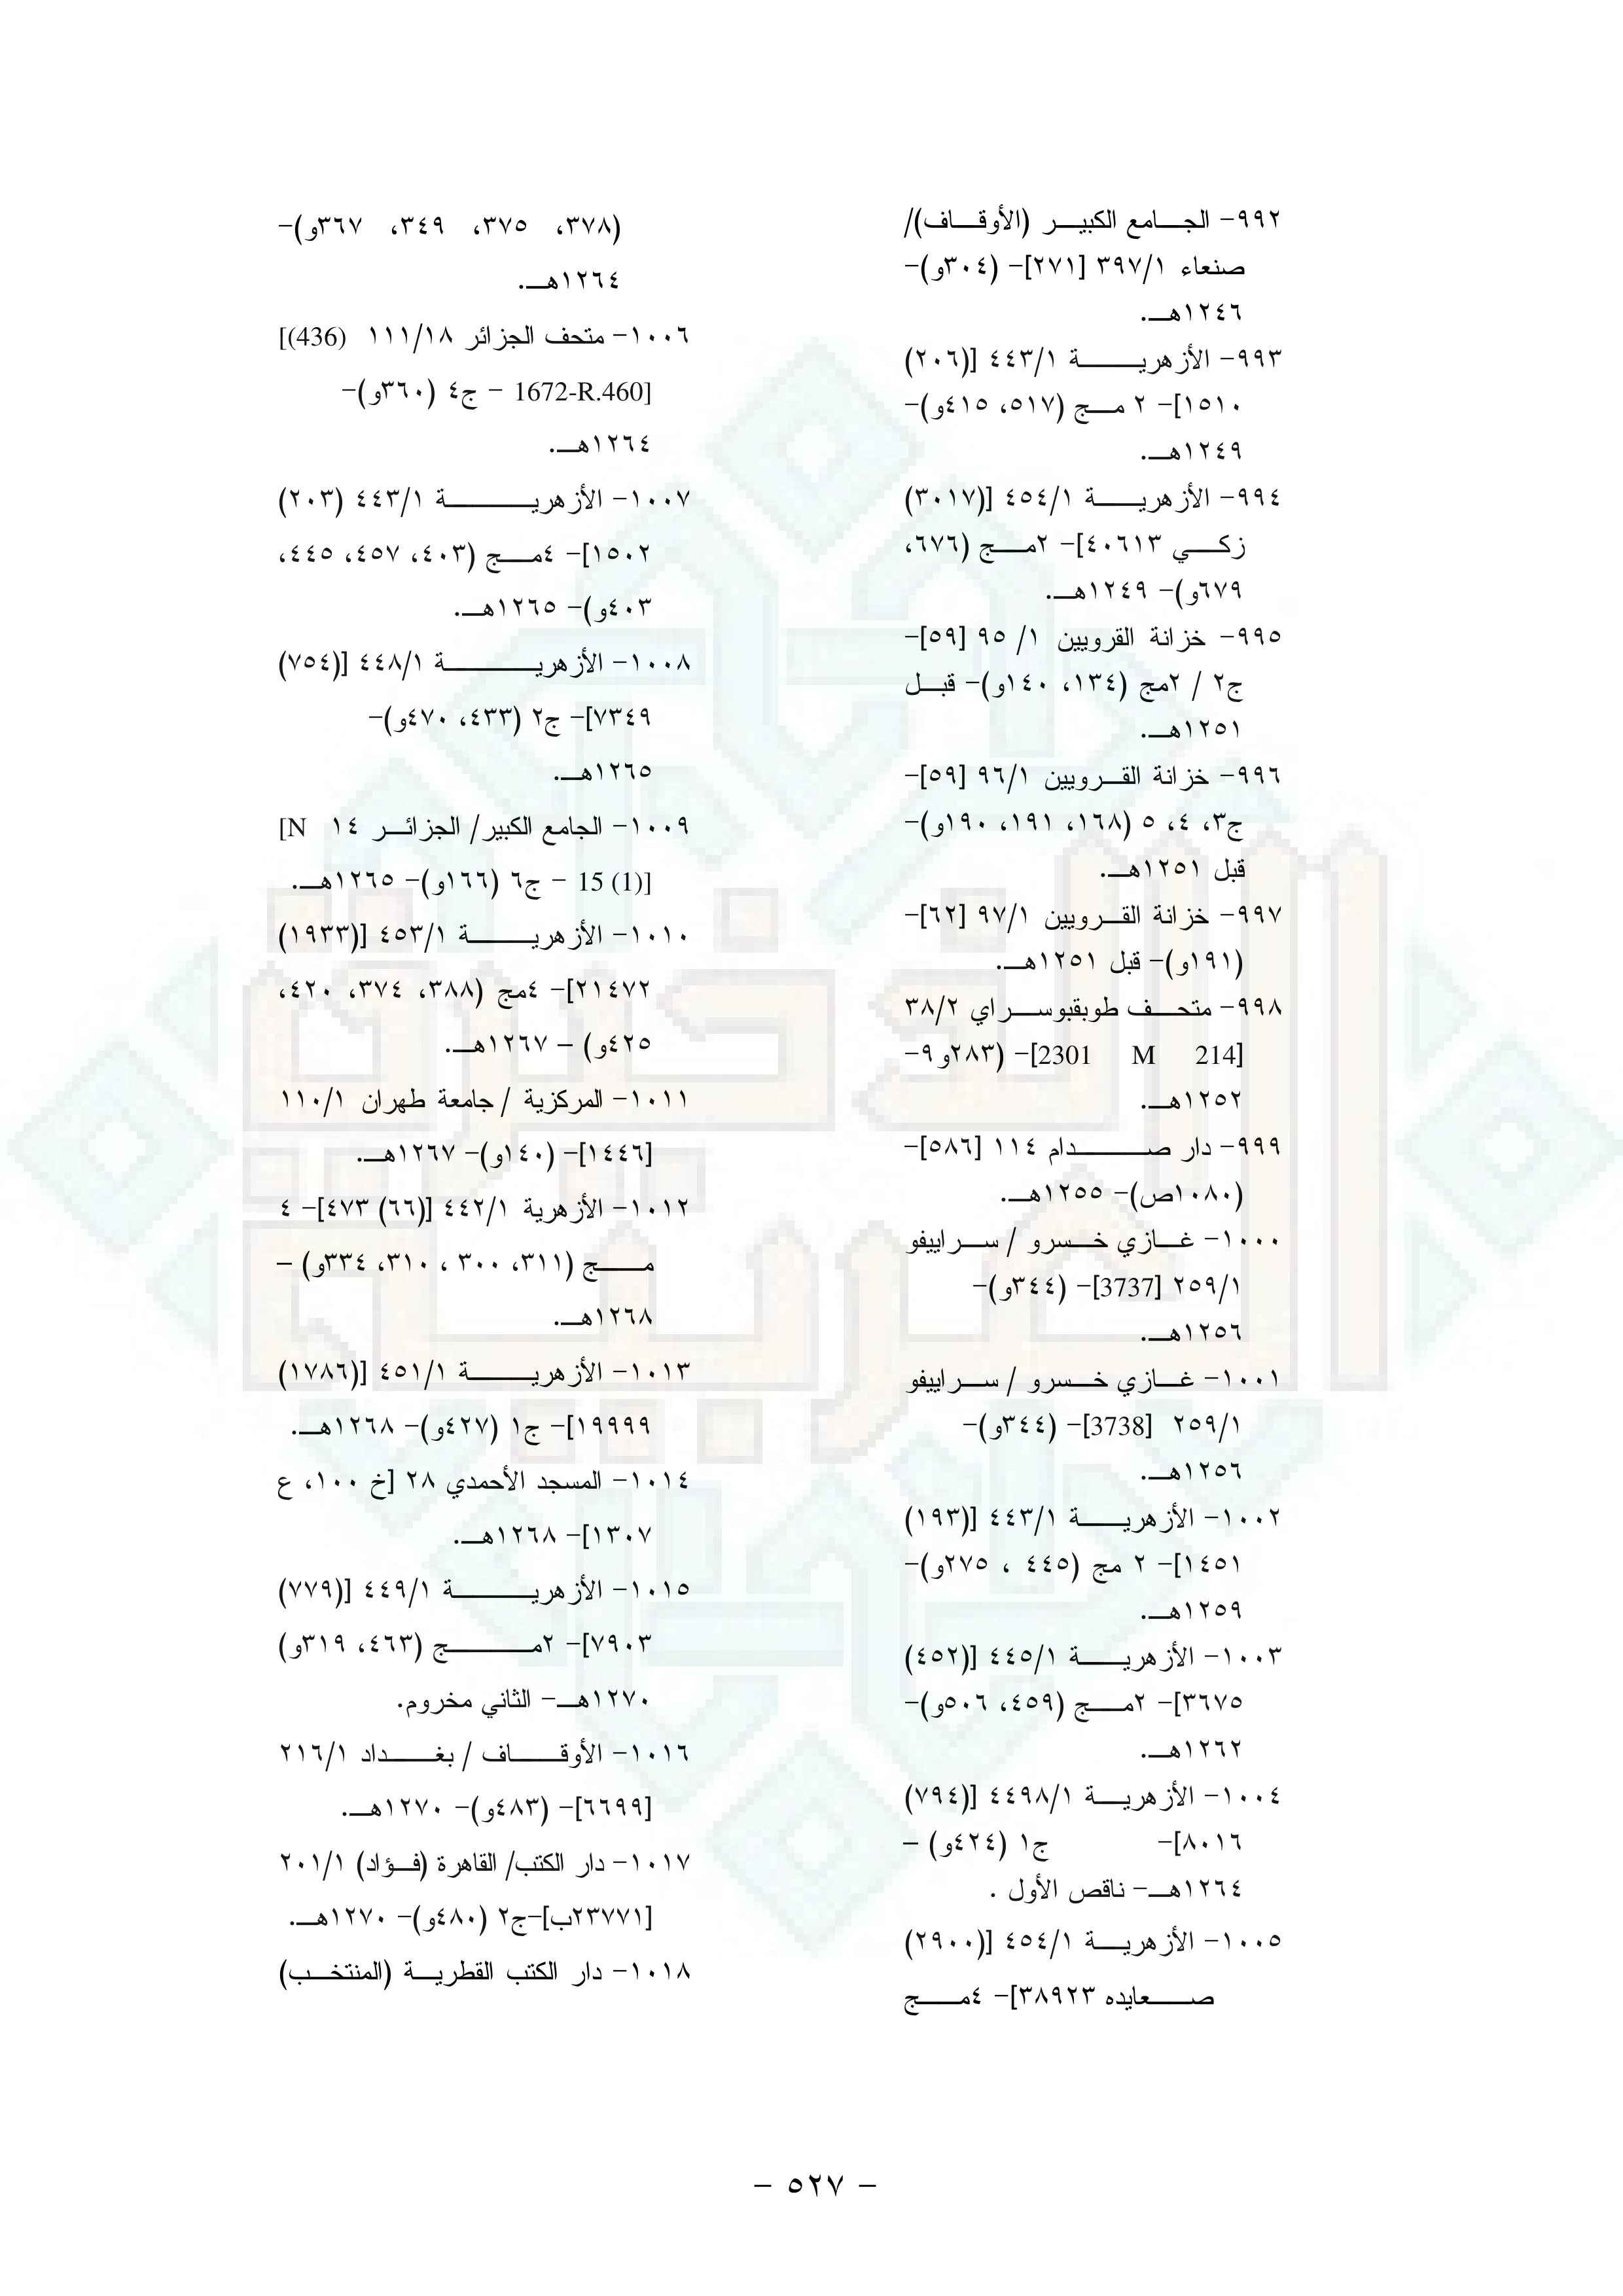 ٩٩٢- الجامع الكبير (الأوقاف)/
صنعاء ٣٩٧/١ [٢٧١]- (٣٠٤و)-
١٢٤٦هـ.
٩٩٣- الأزهرية ٤٤٣/١ [(٢٠٦)
١٥١٠]- ٢ مج (٥١٧، ٤١٥و)-
١٢٤٩هـ.
٩٩٤- الأزهرية ٤٥٤/١ [(٣٠١٧)
زكي ٤٠٦١٣]- ٢مج (٦٧٦،
٦٧٩و)- ١٢٤٩هـ.
٩٩٥- خزانة القرويين ١/ ٩٥ [٥٩]-
ج٢ / ٢مج (١٣٤، ١٤٠و)- قبل
١٢٥١هـ.
٩٩٦- خزانة القرويين ٩٦/١ [٥٩]-
ج٣، ٤، ٥ (١٦٨، ١٩١، ١٩٠و)-
قبل ١٢٥١هـ.
٩٩٧- خزانة القرويين ٩٧/١ [٦٢]-
(١٩١و)- قبل ١٢٥١هـ.
٩٩٨- متحف طوبقبوسراي ٣٨/٢
[2301 M 214]- (٢٨٣و٩-
١٢٥٢هـ.
٩٩٩- دار صدام ١١٤ [٥٨٦]-
(١٠٨٠ص)- ١٢٥٥هـ.
١٠٠٠- غازي خسرو / سراييفو
٢٥٩/١ [3737]- (٣٤٤و)-
١٢٥٦هـ.
١٠٠١- غازي خسرو / سراييفو
٢٥٩/١ [3738]- (٣٤٤و)-
١٢٥٦هـ.
١٠٠٢- الأزهرية ٤٤٣/١ [(١٩٣)
١٤٥١]- ٢ مج (٤٤٥ ، ٢٧٥و)-
١٢٥٩هـ.
١٠٠٣- الأزهرية ٤٤٥/١ [(٤٥٢)
٣٦٧٥]- ٢مج (٤٥٩، ٥٠٦و)-
١٢٦٢هـ.
١٠٠٤- الأزهرية ٤٤٩٨/١ [(٧٩٤)
٨٠١٦]- ج١ (٤٢٤و) -
١٢٦٤هـ- ناقص الأول .
١٠٠٥- الأزهرية ٤٥٤/١ [(٢٩٠٠)
صعايده ٣٨٩٢٣]- ٤مج
(٣٧٨، ٣٧٥، ٣٤٩، ٣٦٧و)-
١٢٦٤هـ.
١٠٠٦- متحف الجزائر ١١١/١٨ [(436)
1672-R.460] - ج٤ (٣٦٠و)-
١٢٦٤هـ.
١٠٠٧- الأزهرية ٤٤٣/١ (٢٠٣)
١٥٠٢]- ٤مج (٤٠٣، ٤٥٧، ٤٤٥،
٤٠٣و)- ١٢٦٥هـ.
١٠٠٨- الأزهرية ٤٤٨/١ [(٧٥٤)
٧٣٤٩]- ج٢ (٤٣٣، ٤٧٠و)-
١٢٦٥هـ.
١٠٠٩- الجامع الكبير/ الجزائر ١٤ [N
15 (1)] - ج٦ (١٦٦و)- ١٢٦٥هـ.
١٠١٠- الأزهرية ٤٥٣/١ [(١٩٣٣)
٢١٤٧٢]- ٤مج (٣٨٨، ٣٧٤، ٤٢٠،
٤٢٥و) - ١٢٦٧هـ.
١٠١١- المركزية / جامعة طهران ١١٠/١
[١٤٤٦]- (١٤٠و)- ١٢٦٧هـ.
١٠١٢- الأزهرية ٤٤٢/١ [(٦٦) ٤٧٣]- ٤
مج (٣١١، ٣٠٠ ، ٣١٠، ٣٣٤و) -
١٢٦٨هـ.
١٠١٣- الأزهرية ٤٥١/١ [(١٧٨٦)
١٩٩٩٩]- ج١ (٤٢٧و)- ١٢٦٨هـ.
١٠١٤- المسجد الأحمدي ٢٨ [خ ١٠٠، ع
١٣٠٧]- ١٢٦٨هـ.
١٠١٥- الأزهرية ٤٤٩/١ [(٧٧٩)
٧٩٠٣]- ٢مج (٤٦٣، ٣١٩و)
١٢٧٠هـ- الثاني مخروم.
١٠١٦- الأوقاف / بغداد ٢١٦/١
[٦٦٩٩]- (٤٨٣و)- ١٢٧٠هـ.
١٠١٧- دار الكتب/ القاهرة (فؤاد) ٢٠١/١
[٢٣٧٧١ب]-ج٢ (٤٨٠و)- ١٢٧٠هـ.
١٠١٨- دار الكتب القطرية (المنتخب)
- ٥٢٧ -